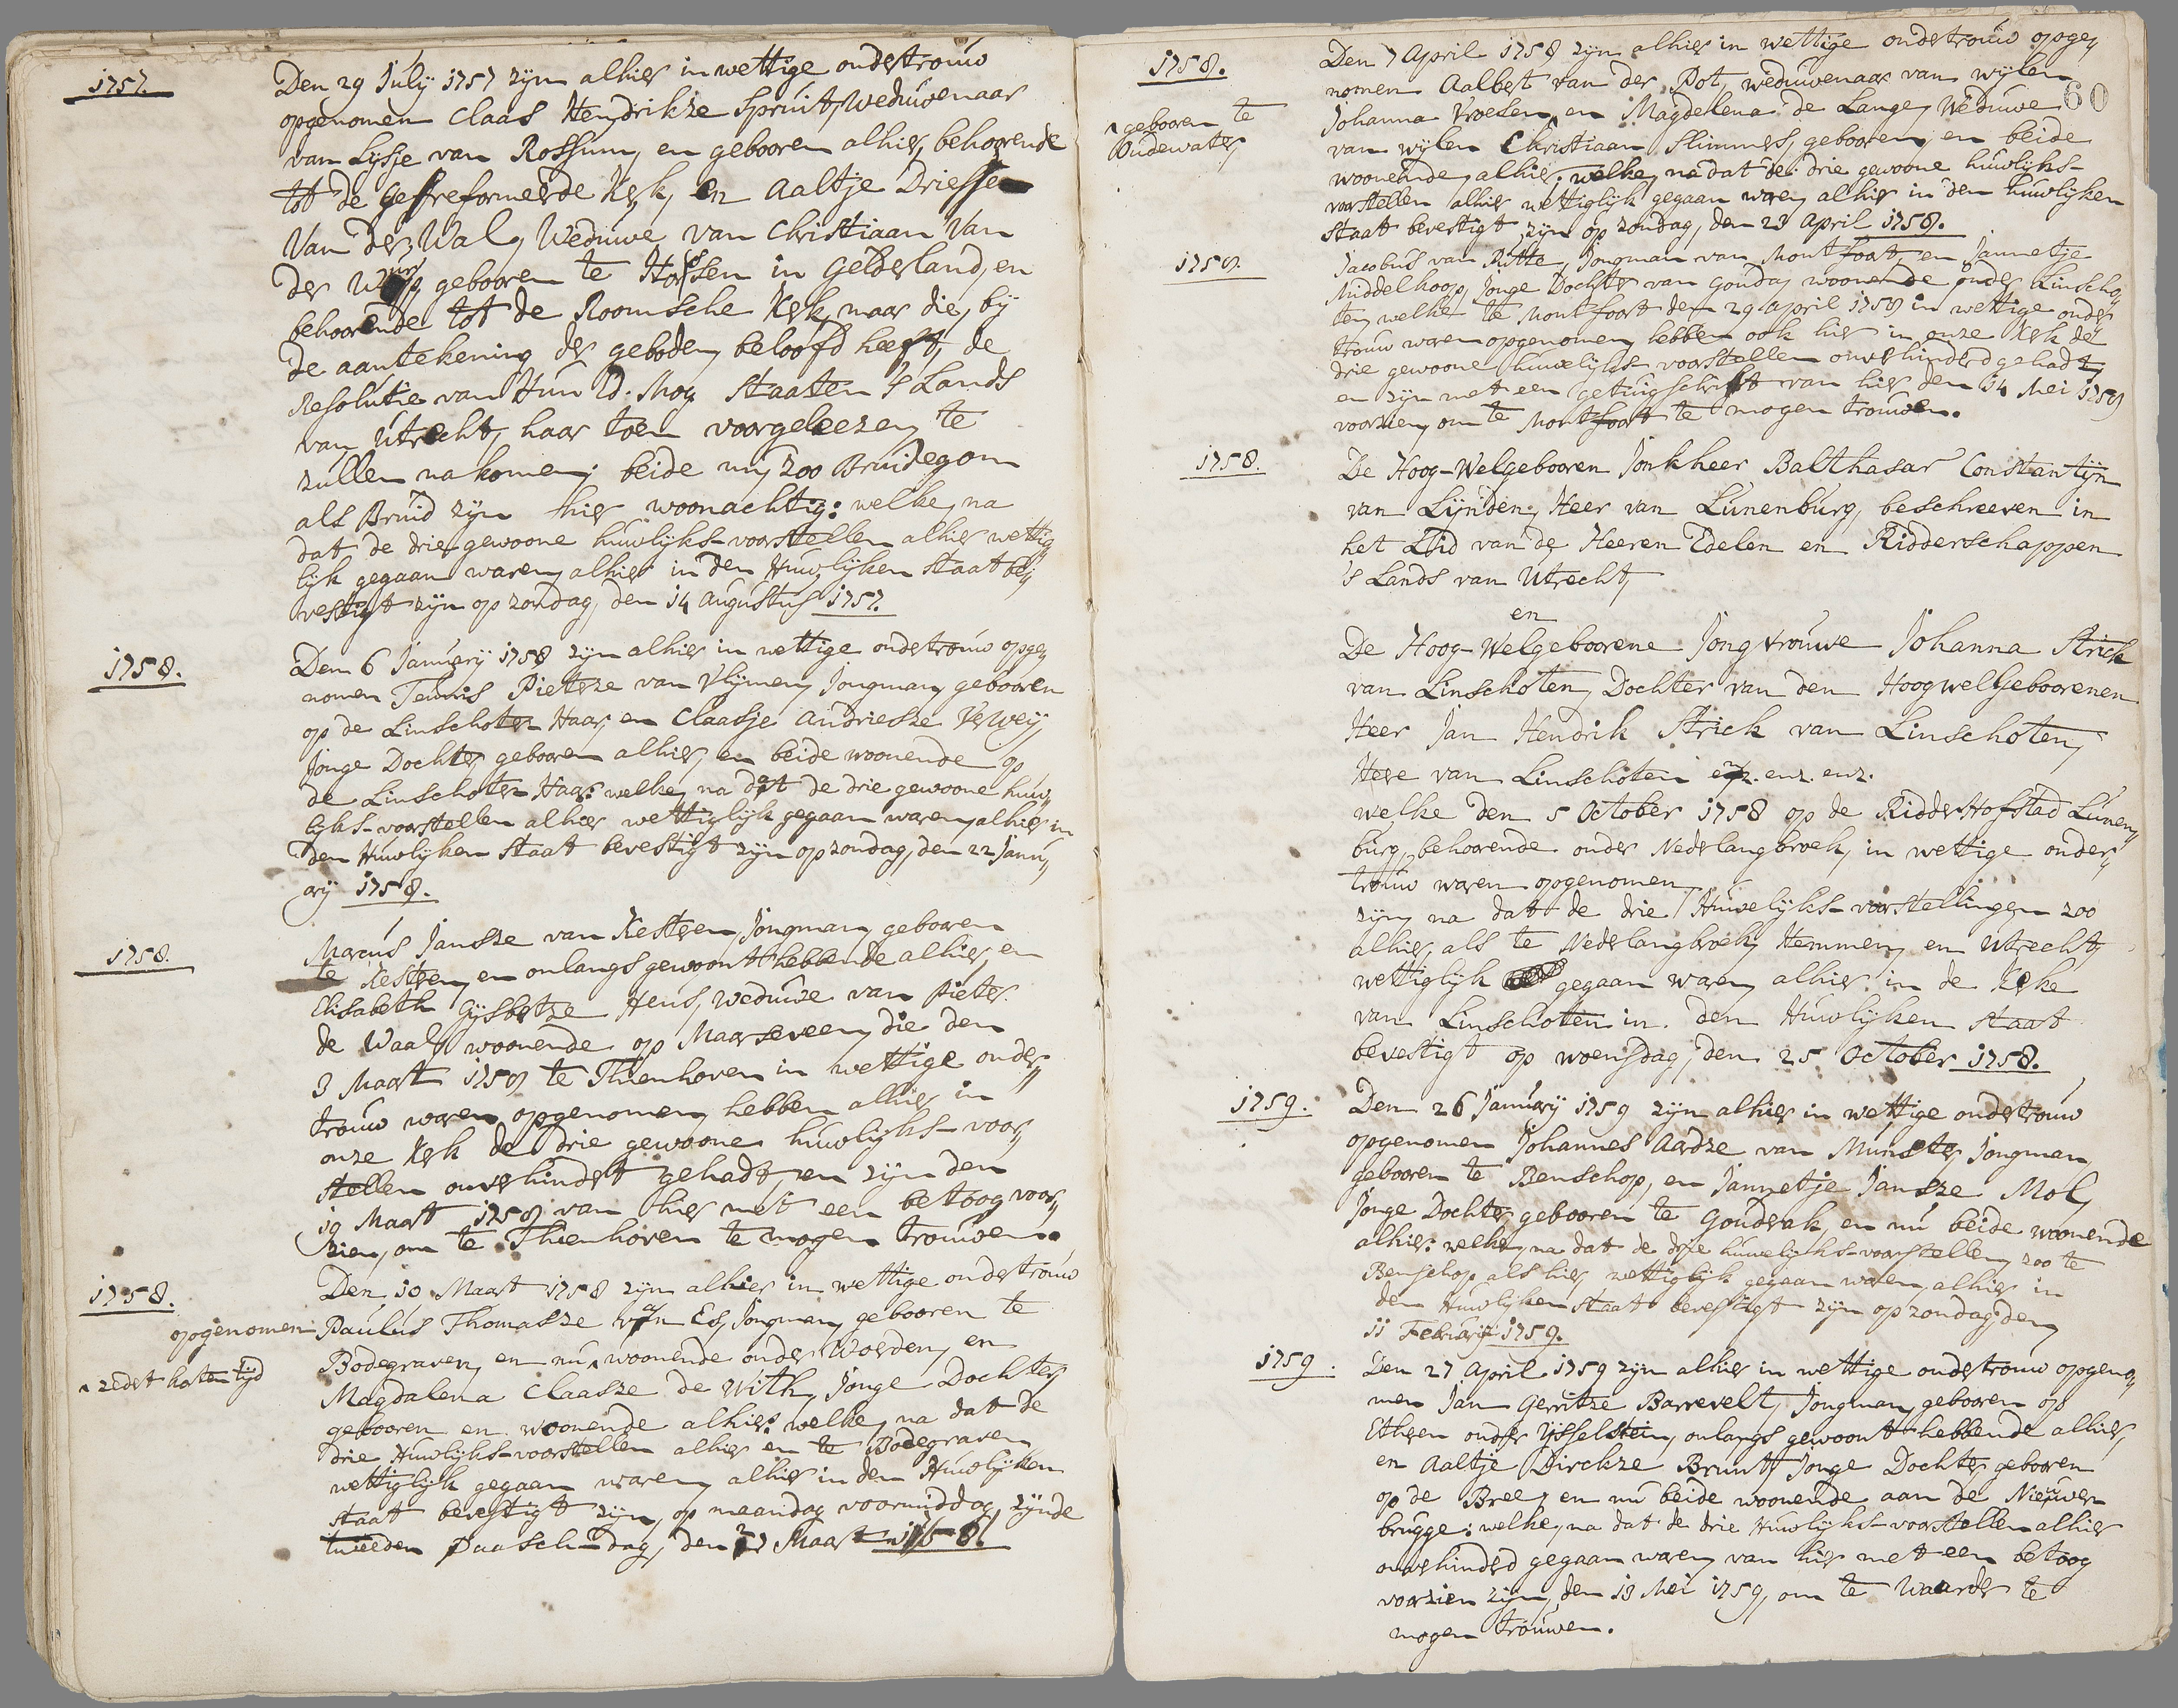 1757.
Den 29 July 1757 zyn alhier in wettige ondertrouw
opgenomen Claas Hendrikze Spruit, Weduwenaar
van Lysje van Rossum, en gebooren alhier, behoorende
tot de Gereformeerde Kerk, en Aaltje Driessen
Van der Wal, Weduwe van Christiaan Van
der gebooren te Horssen in Gelderland, en
behoorende tot de Roomsche Kerk, maar die, by
de aantekening der geboden beloofd heeft, de
Resolutie van Hun Ed. Mog. Staaten 's Lands
van Utrecht, haar toen voorgeleezen, te
zullen nakomen; beide nu, zoo Bruidegom
als Bruid zyn hier woonachtig: welke, na
dat de drie gewoone huwlyks-voorstellen alhier wettig
lyk gegaan waren, alhier in den Huwlyken Staat be,,
vestigt zyn op zondag, den 14 Augustus 1757.
1758.
Den 6 January 1758 zyn alhier in wettige ondertrouw opge,,
nomen Teunis Pieterze van Vlymen, Jongman, gebooren
op de Linschoter Haar, en Claasje Andriesze Verweij,
Jonge Dochter, gebooren alhier, en beide woonende op
de Linschoter Haar: welke, na dat de drie gewoone huw,,
lyks-voorstellen alhier wettiglyk gegaan waren, alhier in
den Huwlyken Staat bevestigt zyn op zondag, den 22 Janu,,
ary 1758.
1758.
Marcus Jansze van Kesteren, Jongman, geboren
te Kesteren, en onlangs gewoont hebbende alhier, en
Elisabeth Gysbertze Heus, Weduwe van Pieter
de Waal, woonende op Maarseveen, die den
3 Maart 1758 te Thienhoven in wettige onder,,
trouw waren opgenomen, hebben alhier in
onze Kerk de drie gewoone huwlyks-voor,,
stellen onverhindert gehadt, en zyn den
19 Maart 1758 van hier met een betoog voor,,
zien, om te Thienhoven te mogen trouwen.
1758.
Den 10 Maart 1758 zyn alhier in wettige ondertrouw
opgenomen Paulus Thomasze van Es, Jongman, gebooren te
Bodegraven, en nu ^ woonende onder Woerden, en
^ zedert korten tijd
Magdalena Claasze de With, Jonge Dochter,
gebooren en woonende alhier: welke, na dat de
drie Huwlyks-voorstellen alhier en te Bodegraven
wettiglyk gegaan waren, alhier in den Huwlyken
staat bevestigt zyn, op maandag voormiddag, zynde
tweeden Paasch-dag, den 27 Maart 1758.
60
1758.
Den 7 April 1758 zyn alhier in wettige ondertrouw opge,,
nomen Aalbert van der Pot, weduwenaar van wylen
Johanna Vroesen, en Magdelena de Lange, Weduwe
van wylen Christiaan Slimmers, gebooren, en beide
^ gebooren te
Oudewater,
woonende, alhier: welke, na dat de drie gewoone huwlyks-
voorstellen alhier wettiglyk gegaan waren, alhier in den huwlyken
staat bevestigt zyn op zondag, den 23 April 1758.
1758.
Jacobus van Rutte, Jongman van Montfoort, en Jannetje
Middelkoop, Jonge Dochter van Gouda, woonende onder Linscho,,
ten, welke te Montfoort den 29 April 1758 in wettige onder
trouw waren opgenomen, hebben ook hier in onze Kerk de
drie gewoone huwelyks-voorstellen onverhinderd gehad,
en zyn met een getuigschrift van hier den 14 Mei 1758
voorzien, om te Montfoort te mogen trouwen.
1758.
De Hoog-Welgebooren Jonkheer Balthasar Constantijn
van Lijnden, Heer van Lunenburg, beschreeven in
het Lid van de Heeren Edelen en Ridderschappen
's Lands van Utrecht,
en
De Hoog-Welgeboorene Jongvrouwe Johanna Strick
van Linschoten, Dochter van den HoogwelGeboorenen
Heer Jan Hendrik Strick van Linschoten,
Here van Linschoten enz. enz. enz.
welke den 5 October 1758 op de RidderHofstad Lunen,,
burg, behoorende onder Nederlangbroek, in wettige onder,,
trouw waren opgenomen,
zyn, na dat de drie Huwelyks-voorstellingen zoo
alhier, als te Nederlangbroek, Hemmen, en Utrecht,
wettiglyk gegaan waren, alhier in de Kerke
van Linschoten in den Huwlyken staat
bevestigt op woensdag, den 25 October 1758.
1759.
Den 26 January 1759 zyn alhier in wettige ondertrouw
opgenomen Johannes Aardze van Munster, Jongman
gebooren te Benschop, en Jannetje Jansze Mol,
Jonge Dochter gebooren te Gouderak, en nu beide woonende
alhier: welke, na dat de drie huwelyks-voorstellen, zoo te
Benschop als hier, wettiglyk gegaan waren, alhier in
den Huwlyken staat bevestigt zyn op zondag den
11 February 1759.
1759.
Den 27 April 1759 zyn alhier in wettige ondertrouw opgeno,,
men Jan Gerritze Barrevelt, Jongman, geboren op
Etheren onder Ysselstein, onlangs gewoont hebbende alhier,
en Aaltje Dirckze Brunt, Jonge Dochter, gebooren
op de Bree, en nu beide woonende aan de Nieuwer
brugge: welke, na dat de drie Huwlyks-voorstellen alhier
onverhinderd gegaan waren, van hier met een betoog
voorzien zyn, den 13 Mei 1759, om te Waarder te
mogen trouwen.